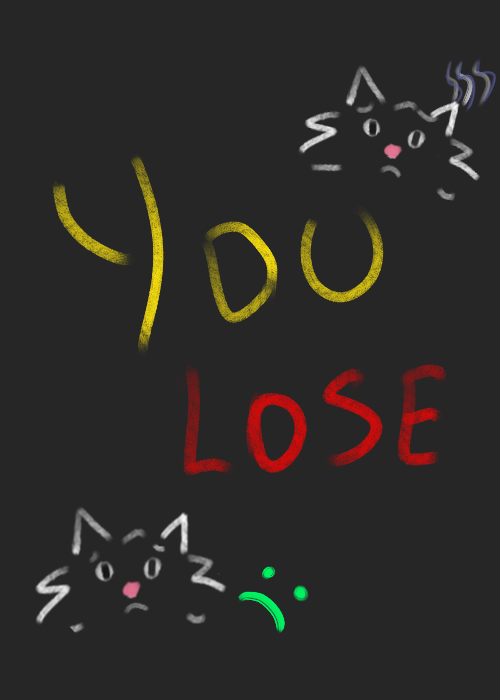 YOU
LOSE